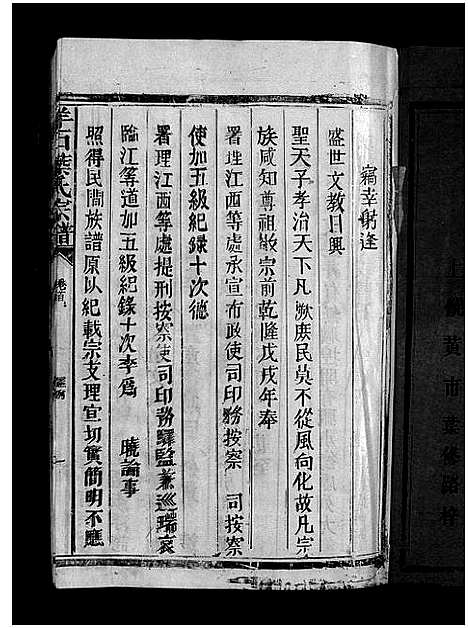 竊幸躬逢
盛世文教日興
聖天子孝治天下凡厥庶民莫不從風向化故凡宗
族咸知尊祖敬宗前乾隆戊戌年奉
署理江西等處承宣布政使司印務按察 司按察
使加五級紀錄十次德
署理江西等處提刑按察使司印務驛監兼巡瑞袁
臨江等道加五級紀錄十次李爲 曉諭事
照得民間族譜原以紀載宗支理宜切實簡明不應
葉氏宗譜